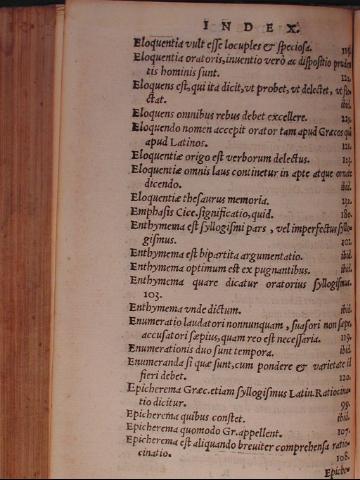 INDEX.
Eloquentia vult esse locuples & speciosa.
Eloquentia oratoris, inuentio verò ac dispositio pruden
tis hominis sunt. 122.
Eloquens est, qui ita dicit, vt probet, vt delectet, vt fle
ctat. ibid.
Eloquens omnibus rebus debet excellere. 123.
Eloquendo nomen accepit orator tam apud Græcos quàm
apud Latinos. 121.
Eloquentiæ origo est verborum delectus. 123.
Eloquentiæ omnis laus continetur in apte atque ornate
dicendo. ibid.
Eloquentiæ thesaurus memoria.
Emphasis Cice. significatio, quid. 180.
Enthymema est syllogismi pars, vel imperfectus syllo
gismus. 102.
Enthymema est bipartita argumentatio. ibid.
Enthymema optimum est ex pugnantibus. ibid.
Enthymema quare dicatur oratorius syllogismus.
103.
Enthymema vnde dictum. ibid.
Enumeratio laudatori nonnunquam, suasori non sæpe,
accusatori sæpius, quam reo est necessaria. 119.
Enumerationis duo sunt tempora. ibid.
Enumeranda si quæ sunt, cum pondere & varietate id
fieri debet. 120.
Epicherema Græc. etiam syllogismus Latin. Ratiocina
tio dicitur. 99.
Epicherema quibus constet. ibid.
Epicherema quomodo Gr. appellent. 107.
Epicherema est aliquando breuiter comprehensa ratio
cinatio. 108.
Epiche-